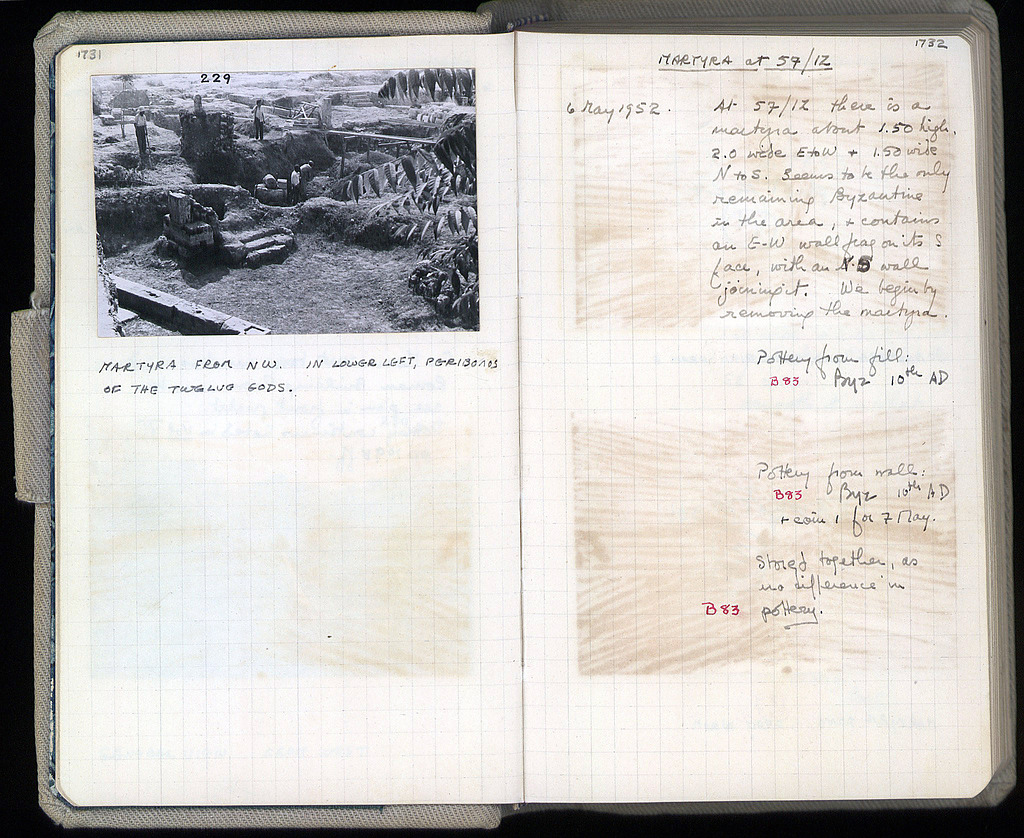 1731
229
MARTYRA FROM NW. IN LOWER LEFT, PERIBOLOS
OF THE TWELVE GODS.
1732
MARTYRA at 57/ΙΖ
6 May 1952.
At 57/ΙΖ there is a
martyra about 1.50 high,
2.0 wide E to W + 1.50 wide
N to S. Seems to be the only
remaining Byzantine
in the area, + contains
an E-W wall frag on its S
face, with an N-S wall
joining it. We begin by
removing the martyra.
Pottery from fill:
B83 Byz 10th AD
Pottery from wall:
B83 Byz 10th AD
+ coin 1 for 7 May.
Stored together, as
no difference in
B83 pottery.